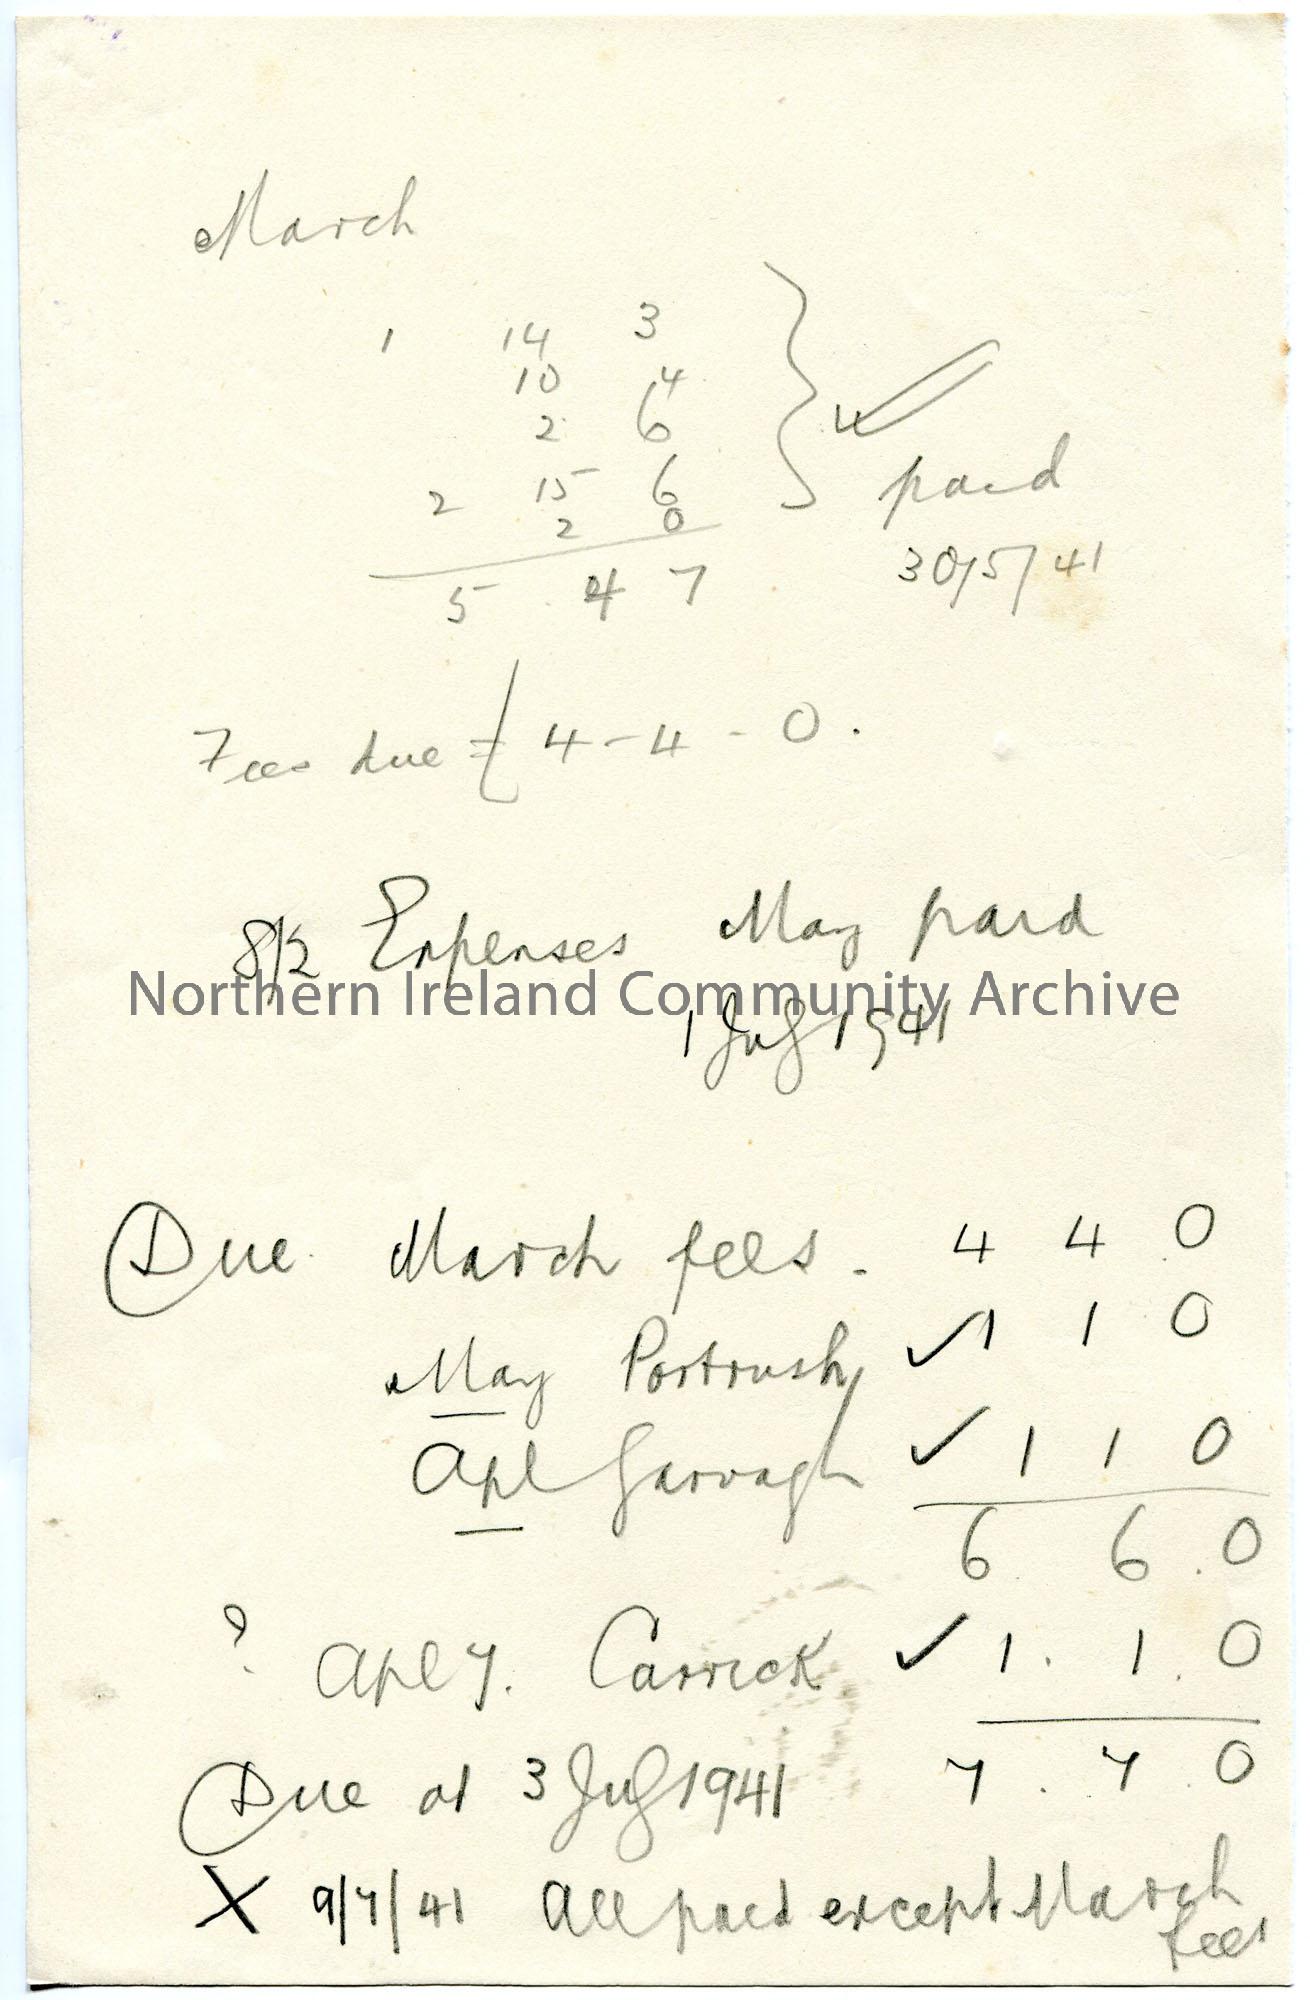 March
1 14 3
10 4
2 6
2 15 6
2 0
5 4 7
paid
30/5/41
Fees due = £ 4-4-0.
8/2 Expenses May paid
Northern Ireland Community Archive
1 July 1941
Due March fees. 4 4 0
May Portrush ✓ 1 1 0
Apl Garvagh ✓ 1 1 0
6. 6. 0
? Apl 7. Carrick ✓ 1. 1. 0
7. 7. 0
Due at 3 July 1941
X 9/7/41 All paid except March
fees